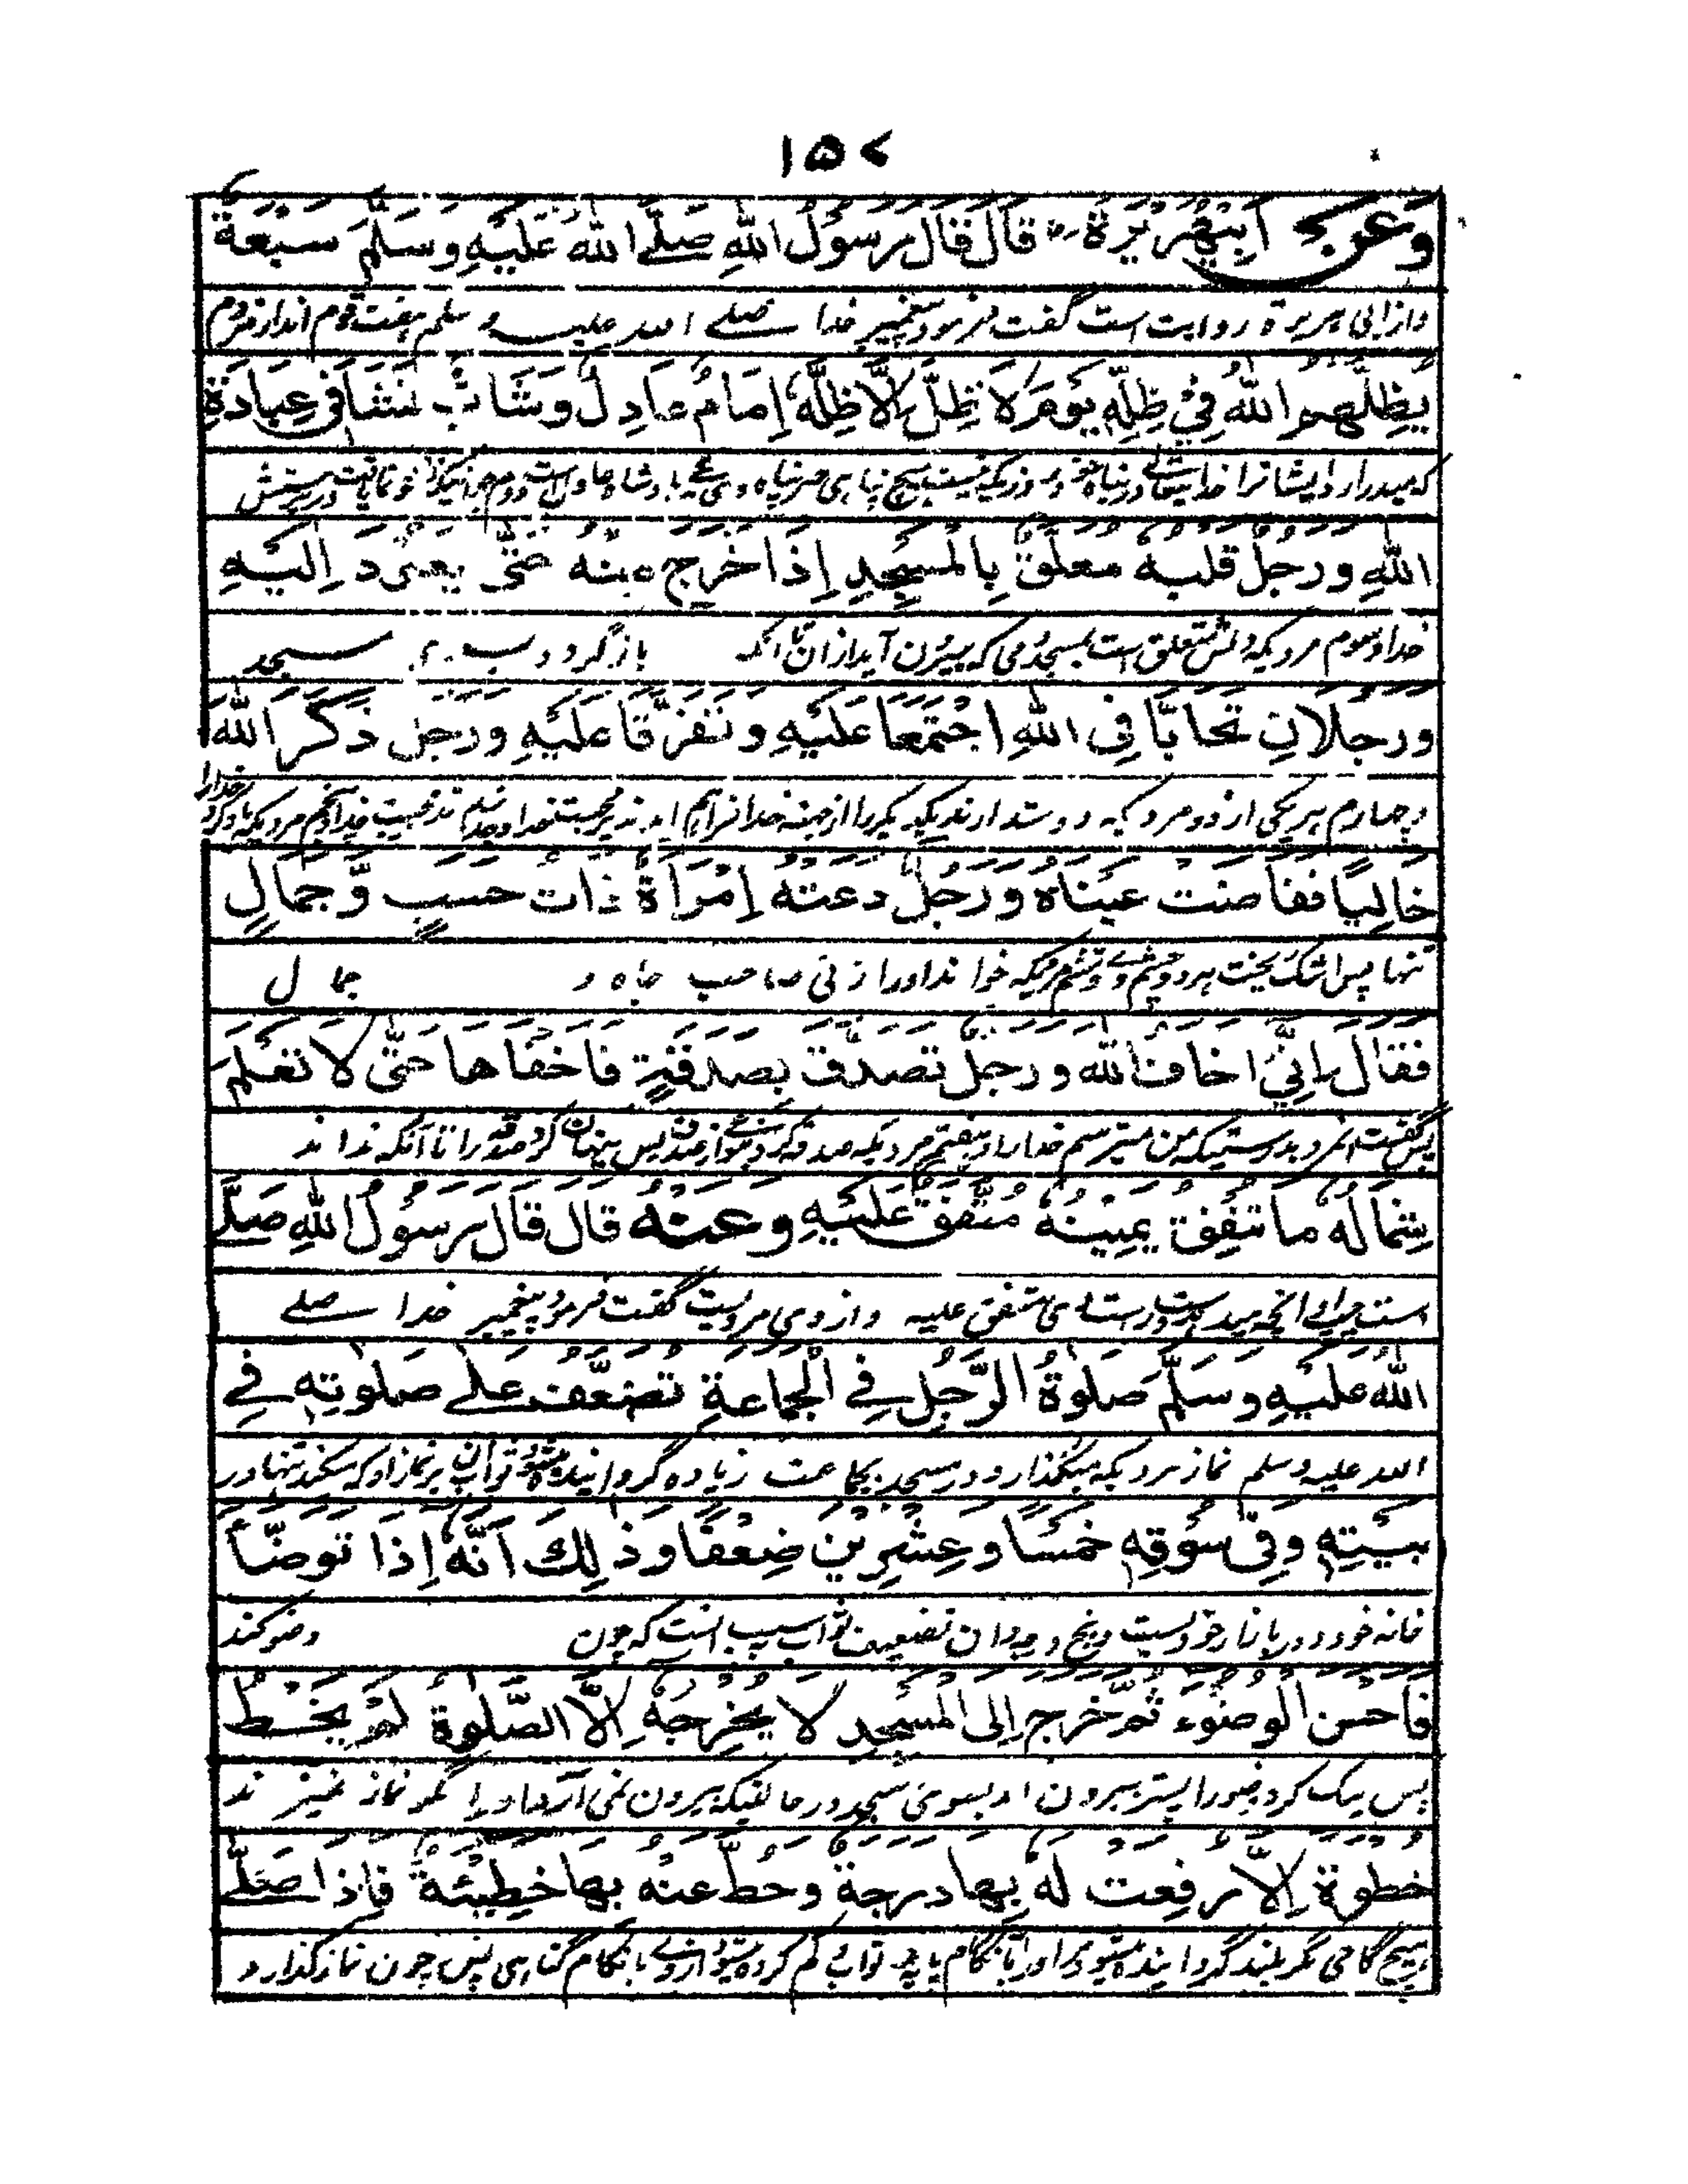 ۱۵۷
وَعَنْ أَبِي هُرَيْرَةَ رض قَالَ قَالَ رَسُوْلُ اللهِ صَلَّے اللهُ عَلَيْهِ وَسَلَّمَ سَبْعَةٌ
و از ابی هریرة روایت است گفت فرمود پیغمبر خدا صلے الله علیه و سلم هفت قوم اند از مردم
يُظِلُّهُمُ اللهُ فِيْ ظِلِّهِ يَوْمَ لَا ظِلَّ إِلَّا ظِلُّهٗ إِمَامٌ عَادِلٌ وَشَابٌّ نَشَأَ فِي عِبَادَةِ
که میدارد ایشانرا خدایتعالے در پناه خود روزیکه نیست هیچ پناهی مگر پناه وی یکے بادشاه عادل است دوم جوانیکه نشو نما یافت در پرستش
اللهِ وَرَجُلٌ قَلْبُهٗ مُعَلَّقٌ بِالْمَسْجِدِ إِذَا خَرَجَ مِنْهُ حَتّٰى يَعُوْدَ اِلَيْهِ
خدا و سوم مردیکه دلش متعلق است بمسجد می که بیرون آید ازان تا آنکه بازگردد بسوی مسجد
وَرَجُلَانِ تَحَابَّا فِي اللهِ اجْتَمَعَا عَلَيْهِ وَتَفَرَّقَا عَلَيْهِ وَرَجُلٌ ذَكَرَ اللهَ
و چهارم هر یکی از دو مرد که دوستدارند یکدیگر را از جهت خدا فراهم آیند بر محبت خدا و جدا شوند بر محبت خدا و پنجم مردیکه یاد کرد خدا را
خَالِيًا فَفَاضَتْ عَيْنَاهُ وَرَجُلٌ دَعَتْهُ إِمْرَأَةٌ ذَاتُ حَسَبٍ وَّجَمَالٍ
تنها پس اشک ریخت هر دو چشم وے و ششم مردیکه خواند او را زنی صاحب جاه و جمال
فَقَالَ إِنِّيْ أَخَافُ اللهَ وَرَجُلٌ تَصَدَّقَ بِصَدَقَةٍ فَأَخْفَاهَا حَتّٰى لَا تَعْلَمَ
پس گفت آنمرد بدرستیکه من میترسم خدا را و هفتم مردیکه صدقه کرد پس پنهان کرد صدقه را تا آنکه نداند
شِمَالُهٗ مَا تُنْفِقُ يَمِيْنُهٗ مُتَّفَقٌ عَلَيْهِ وَعَنْهُ قَالَ قَالَ رَسُوْلُ اللهِ صَلَّے
دست چپ او آنچه میدهد دست راست وی متفق علیه و از وی مرویست گفت فرمود پیغمبر خدا صلے
اللهُ عَلَيْهِ وَسَلَّمَ صَلٰوةُ الرَّجُلِ فِي الْجَمَاعَةِ تُضَعَّفُ عَلٰى صَلٰوتِهٖ فِي
الله علیه و سلم نماز مردیکه میگذارد در مسجد بجماعت زیاده گردانیده میشود ثواب آن بر نماز او که میکند تنها در
بَيْتِهٖ وَفِي سُوْقِهٖ خَمْسًا وَعِشْرِيْنَ ضِعْفًا وَذٰلِكَ اَنَّهٗ إِذَا تَوَضَّأَ
خانه خود و در بازار خود بیست و پنج درجه و آن تضعیف ثواب بسبب آنست که چون وضو کند
فَأَحْسَنَ الْوُضُوْءَ ثُمَّ خَرَجَ إِلَى الْمَسْجِدِ لَا يُخْرِجُهٗ إِلَّا الصَّلٰوةُ لَمْ يَخْطُ
پس نیک کرد وضو را پستر بیرون آمد بسوی مسجد در حالیکه بیرون نمی آرد او را مگر نماز نمیزند
خُطْوَةً إِلَّا رُفِعَتْ لَهٗ بِهَا دَرَجَةٌ وَحُطَّ عَنْهُ بِهَا خَطِيْئَةٌ فَإِذَا صَلّٰے
هیچ گامی مگر بلند گردانیده میشود مر او را بآنگام پایه ثواب و کم کرده میشود از وے بآنگام گناهی پس چون نماز گذارد